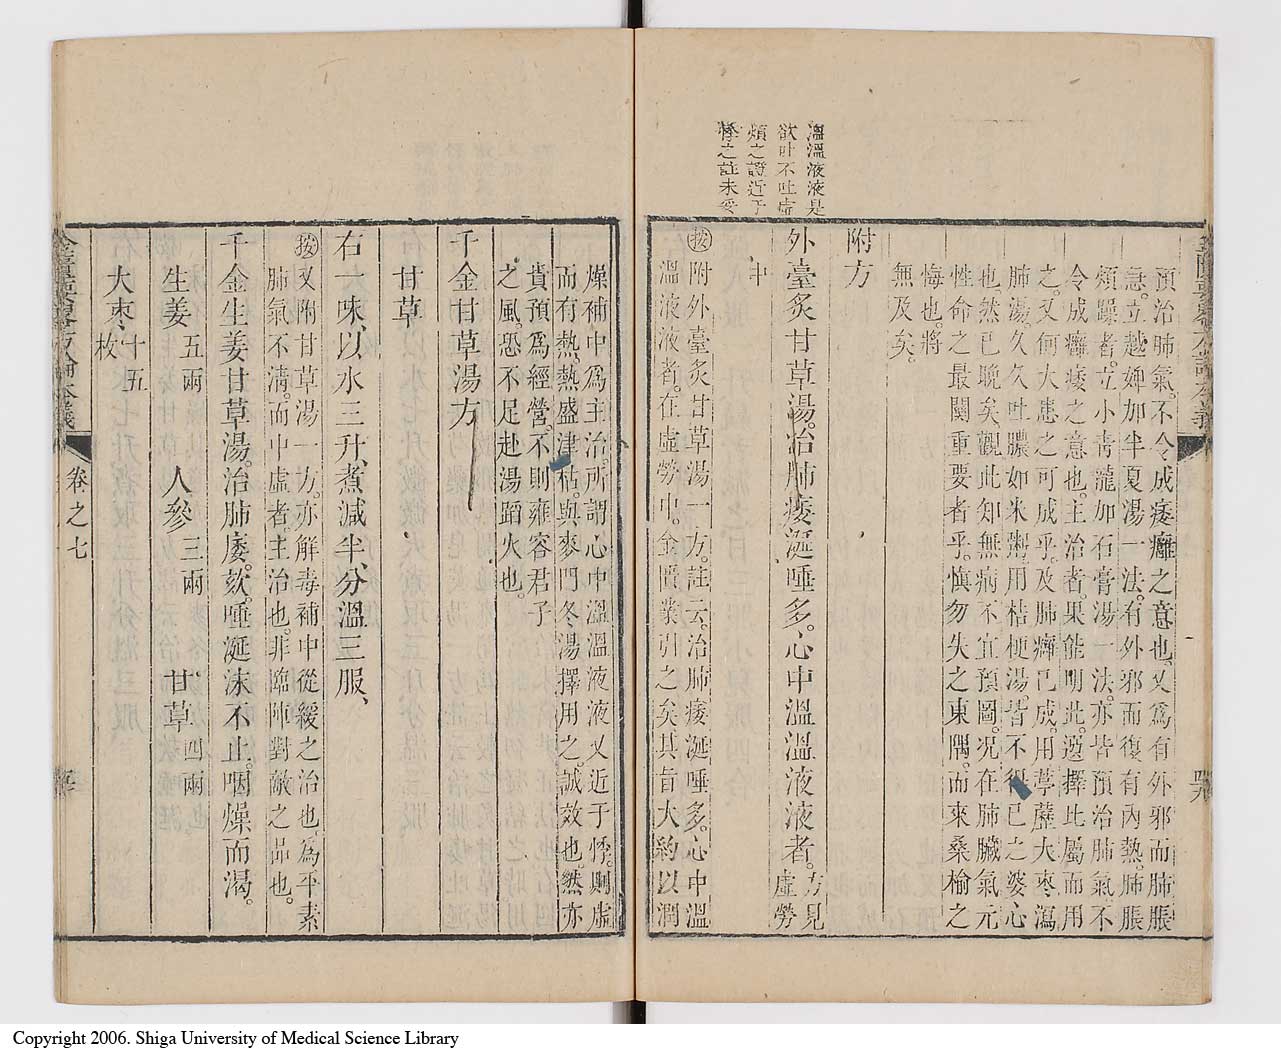 溫溫液液是
欲吐不吐虛
煩之證近于
悸之註未妥
預治肺氣。不令成痿癰之意也。又爲有外邪而肺脹
急。立越婢加半夏湯一法。有外邪而復有內熱。肺脹
煩躁者。立小靑龍加石膏湯一法。亦皆預治肺氣。不
令成癰痿之意也。主治者。果能明此。選擇此屬而用
之。又何大患之可成乎。及肺癰已成。用葶藶大棗瀉
肺湯。久久吐膿如米粥。用桔梗湯。皆不得已之婆心
也。然已晚矣。觀此知無病不宜預圖。况在肺臟氣元
性命之最關重要者乎。愼勿失之東隅。而來桑榆之
悔也。將
無及矣。
附方
外臺炙甘草湯。治肺痿涎唾多。心中溫溫液液者。方見虛勞
中
按附外臺炙甘草湯一方。註云。治肺痿涎唾多。心中溫
溫液液者。在虛勞中。金匱業引之矣。其旨大約以潤
燥補中爲主治。所謂心中溫溫液液。又近于悸。則虛
而有熱。熱盛津枯。與麥門冬湯擇用之。誠效也。然亦
貴預爲經營。不則雍容君子
之風。恐不足赴湯蹈火也。
千金甘草湯方
甘草
右一味、以水三升、煮減半、分溫三服、
按又附甘草湯一方。亦解毒補中從緩之治也。爲平素
肺氣不淸。而中虛者主治也。非臨陣對敵之品也。
千金生姜甘草湯。治肺痿。欬。唾涎沫不止。咽燥而渴。
生姜五兩 人參三兩 甘草四兩
大棗十五枚
卷之七
Copyright 2006. Shiga University of Medical Science Library